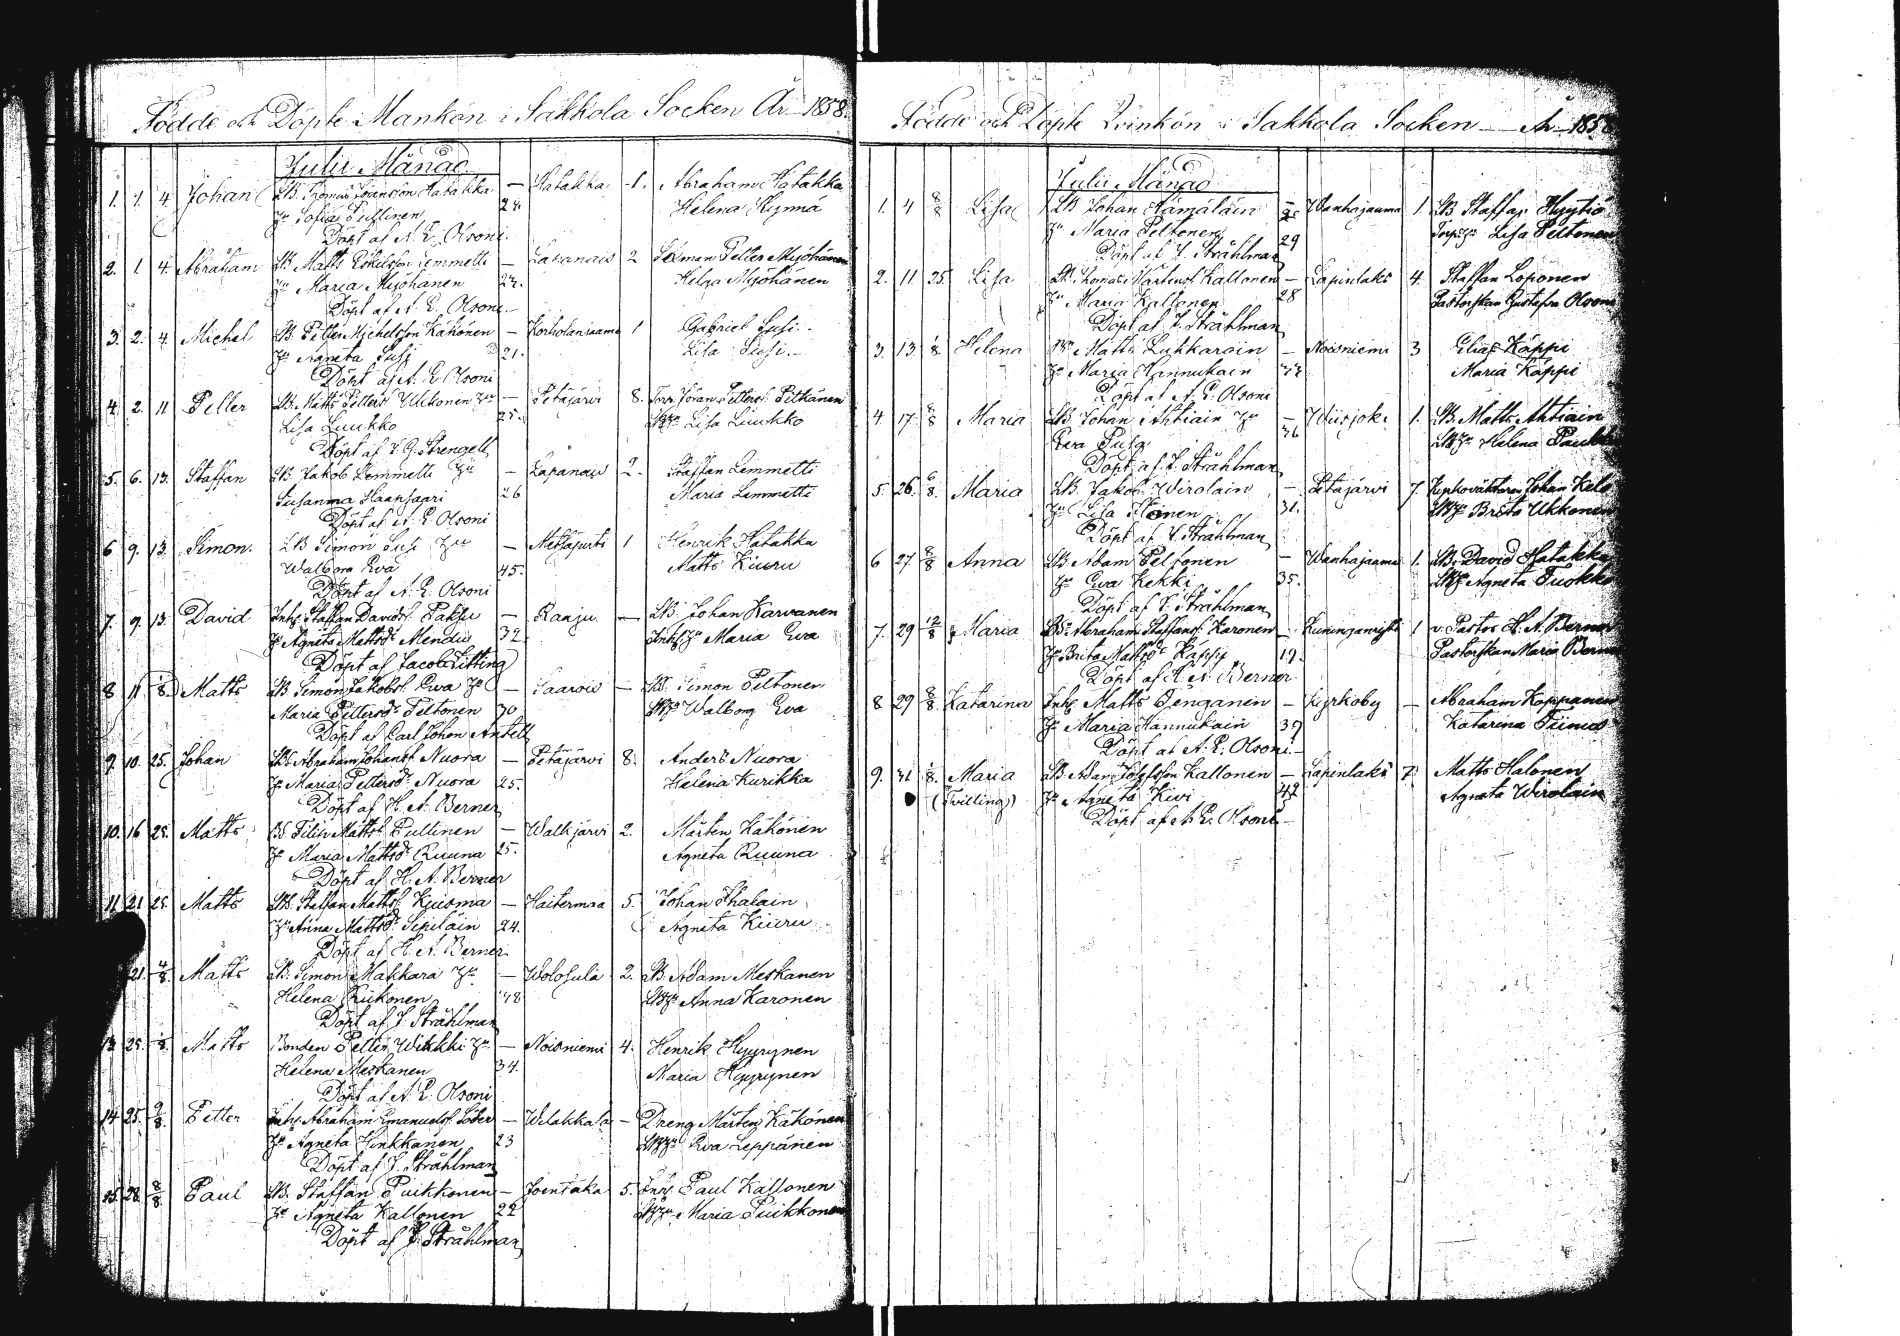 Födde och Döpte Mankön i Sakkola Socken År 1858.
Julii Månad.
1. 1. 4 Johan LB. Thomas Göransson Hatakka — Hatakka 1. Abraham Hatakka
Hu Sofia Pultinen 24 Helena Kynnä
Döpt af A. E. Olsoni.
2. 1. 4. Abraham LB. Matts Eskelsson Lemmetti — Lapanais 2 Petter Myöhänen
Hu Maria Myöhänen 24. Helga Myöhänen
Döpt af A. E. Olsoni.
3. 2. 4 Michel LB. Petter Michelsson Käkönen — 1 Gabriel Susi
Hu Agneta Susi 21. Lisa Susi
Döpt af A. E. Olsoni
4. 2. 11 Petter LB. Matts Petters. Ukkonen Hu — Petäjärvi 8. Torp. Göran Petters. Pitkänen
Lisa Liukko 25. Lisa Liukko
Döpt af Strengell
5. 6. 13. Staffan LB Jakob Lemmetti Hu — Lapanais 2. Staffan Lemmetti
Susanna Haapsaari 26 Maria Lemmetti
Döpt af A. E. Olsoni
6 9. 13. Simon. LB Simon Susi Hu — Metsäpirti 1 Henrik Hatakka
Walborg Eva 45. Matts Kiuru
Döpt af A. E. Olsoni
7. 9. 13. David Inh. Staffan Davids. Paksu — Raaju — LB. Johan Karvanen
Hu Agneta Mattsd. Mendu 32. Inh. Hu Maria Eva
Döpt af Jacob Sitting
8 11 1/8 Matts LB Simon Jakobs. Eva Hu — Saarois — LB. Simon Peltonen
Maria Pettersd. Peltonen 30 LB Hu Walborg Eva
Döpt af Carl Johan Antell
9. 10. 25. Johan LB. Abraham Johans. Nuora — Petäjärvi 8. Anders Nuora
Hu Maria Pettersd. Nuora 25. Helena Kurikka
Döpt af H. A. Berner
10. 16 25. Matts LB Filip Matts. Pultinen — Walkjärvi 2. Mårten Käkönen
Hu Maria Mattsd. Ruuna 25. Agneta Ruuna
Döpt af H. A. Berner
11 21 25. Matts LB. Staffan Matts. Kuisma — Haitermaa 5. Johan Ihalain
Hu Anna Mattsd. Sipiläin 24. Agneta Kiuru
Döpt af H. A. Berner
21. 4/8. Matts LB. Simon Makkara Hu — Wolosula 2. LB. Adam Meskanen
Helena Riikonen 48 LB Hu Anna Karonen
Döpt af J. Stråhlman
13. 25. 1/8. Matts Bonden Petter Wikkki Hu — Noisniemi 4. Henrik Hyyrynen
Helena Meskanen 34. Maria Hyyrynen
Döpt af A. E. Olsoni
14 25. 9/8. Petter Inh. Abraham Emanuels. — Welakkala — Dreng Mårten Käkönen
Hu Agneta Hinkkanen 23 Eva Leppänen
Döpt af J. Stråhlman
15. 28. 8/8 Paul LB. Staffan Puikkonen — Joentaka 5. Inh. Paul Kallonen
Hu Agneta Kallonen 22 Maria Puikkonen
Döpt af J. Stråhlman
Födde och Döpte Qvinkön i Sakkola Socken År 1858
Julii Månad
1. 4 8/8 Lisa LB Johan Hämäläin — Wanhajaama 1. LB Staffan Hyytiä
Hu Maria Peltonen 29 Torp. Hu Lisa Peltonen
Döpt af J. Stråhlman
2. 11 25. Lisa LB. Thomas Mårtens. Kallonen — Lapinlaks 4. Staffan Loponen
Hu Maria Kallonen 28 Pastorskan Gustafva Olsoni
Döpt af J. Stråhlman
3. 13 1/8. Helena Matts Lukkarain — Noisniemi 3 Elias Käppi
Hu Maria Hannukain Maria Käppi
Döpt af A. E. Olsoni
4 17. 8/8 Maria LB. Johan Ahtiain Hu — Wiisjoki 1. LB. Matts Ahtiain
Eva Pusa 36 LB Hu Helena
Döpt af J. Stråhlman
5. 26. 6/8. Maria LB. Jakob Wirolain — Petäjärvi 7. Kyrkoväktaren Johan
Hu Lisa 31. LB Hu Brita Ukkonen
Döpt af J. Stråhlman
6 27. 8/8 Anna LB. Adam Peltonen — Wanhajaama 1. LB. David Hatakka
Hu Eva Kekki 35. LB Hu Agneta Tuokko
Döpt af J. Stråhlman
7. 29 12/8 Maria LB. Abraham Staffans. Karonen — 1 v. Pastor H. A. Berner
Hu Brita Mattsd. Kappi 19. Pastorskan Maria Berner
Döpt af H. A. Berner
8 29 8/8. Katarina Inh. Matts Jenganen — Kyrkoby — Abraham Koppanen
Hu Maria Hannukain 39 Katarina
Döpt af A. E. Olsoni
9. 31 1/8. Maria LB. Adam Kallonen — Lapinlaks 7. Matts Halonen
(Tvilling) Hu Agneta Kivi 42 Agneta Wirolain
Döpt af A. E. Olsoni